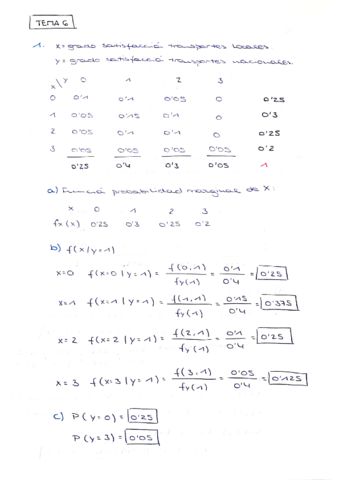 TEMA 6
1. x= grado satisfacció transportes locales
y= grado satisfacció transportes nacionales
x\y 0 1 2 3
0 0'1 0'1 0'05 0 0'25
1 0'05 0'15 0'1 0 0'3
2 0'05 0'1 0'1 0 0'25
3 0'05 0'05 0'05 0'05 0'2
0'25 0'4 0'3 0'05 1
a) Funció probabilidad marginal de X:
x 0 1 2 3
fx(x) 0'25 0'3 0'25 0'2
b) f(x/y=1)
x=0 f(x=0|y=1) = f(0,1)/fy(1) = 0'1/0'4 = 0'25
x=1 f(x=1|y=1) = f(1,1)/fy(1) = 0'15/0'4 = 0'375
x=2 f(x=2|y=1) = f(2,1)/fy(1) = 0'1/0'4 = 0'25
x=3 f(x=3|y=1) = f(3,1)/fy(1) = 0'05/0'4 = 0'125
c) P(y=0) = 0'25
P(y=3) = 0'05